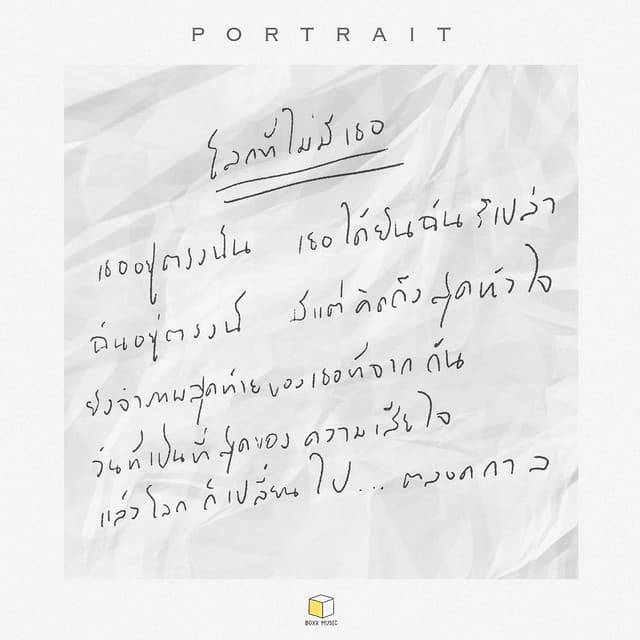 PORTRAIT
โลกที่ไม่มีเธอ
เธออยู่ตรงนั้น เธอได้ยินฉันรึเปล่า
ฉันอยู่ตรงนี้ มีแต่คิดถึงสุดหัวใจ
ยังจำภาพสุดท้ายของเธอที่จากกัน
วันที่เป็นที่สุดของความเสียใจ
แล้วโลกก็เปลี่ยนไป... ตลอดกาล
BOXX MUSIC